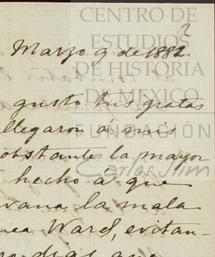 CENTRO DE
ESTUDIOS
DE HISTORIA
DE MÉXICO
FUNDACIÓN
Carlos Slim
Marzo 9 de 1882
gusto tus gratas
llegaron á mis
obstante la mayor
hecho á que
la mala
Ward, evitan-
dias que